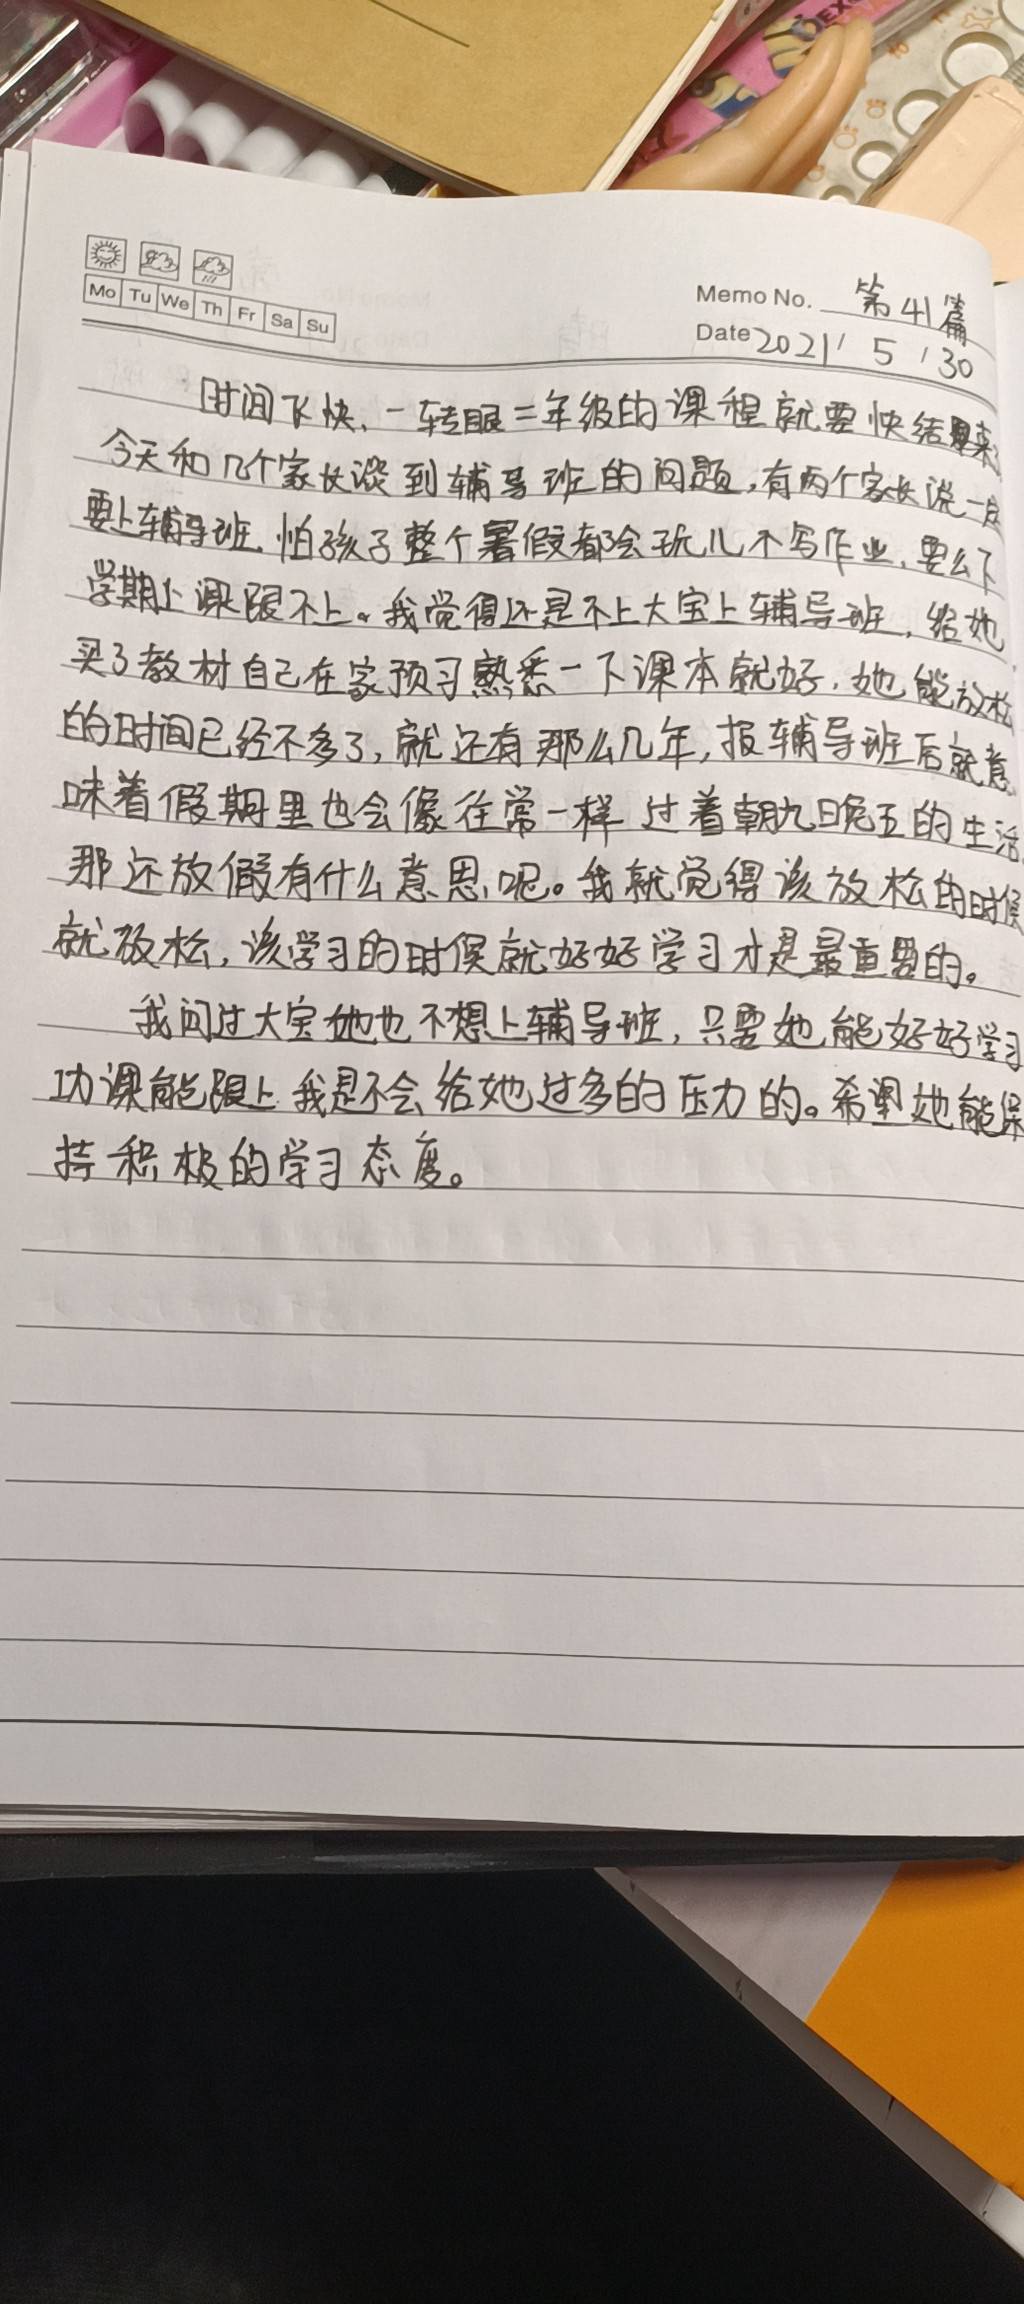 Mo Tu We Th Fr Sa Su
Memo No. 第41篇
Date 2021 / 5 / 30
时间飞快、一转眼二年级的课程就要快结束
今天和几个家长谈到辅导班的问题,有两个家长说一定
要上辅导班、怕孩子整个暑假都会玩儿不写作业、要么下
学期上课跟不上。我觉得还是不上大宝上辅导班,给她
买了教材自己在家预习熟悉一下课本就好,她能放松
的时间已经不多了,就还有那么几年,报辅导班后就意
味着假期里也会像往常一样过着朝九晚五的生活
那还放假有什么意思呢。我就觉得该放松的时候
就放松,该学习的时候就好好学习才是最重要的。
我问过大宝她也不想上辅导班,只要她能好好学习
功课能跟上我是不会给她过多的压力的。希望她能保
持积极的学习态度。